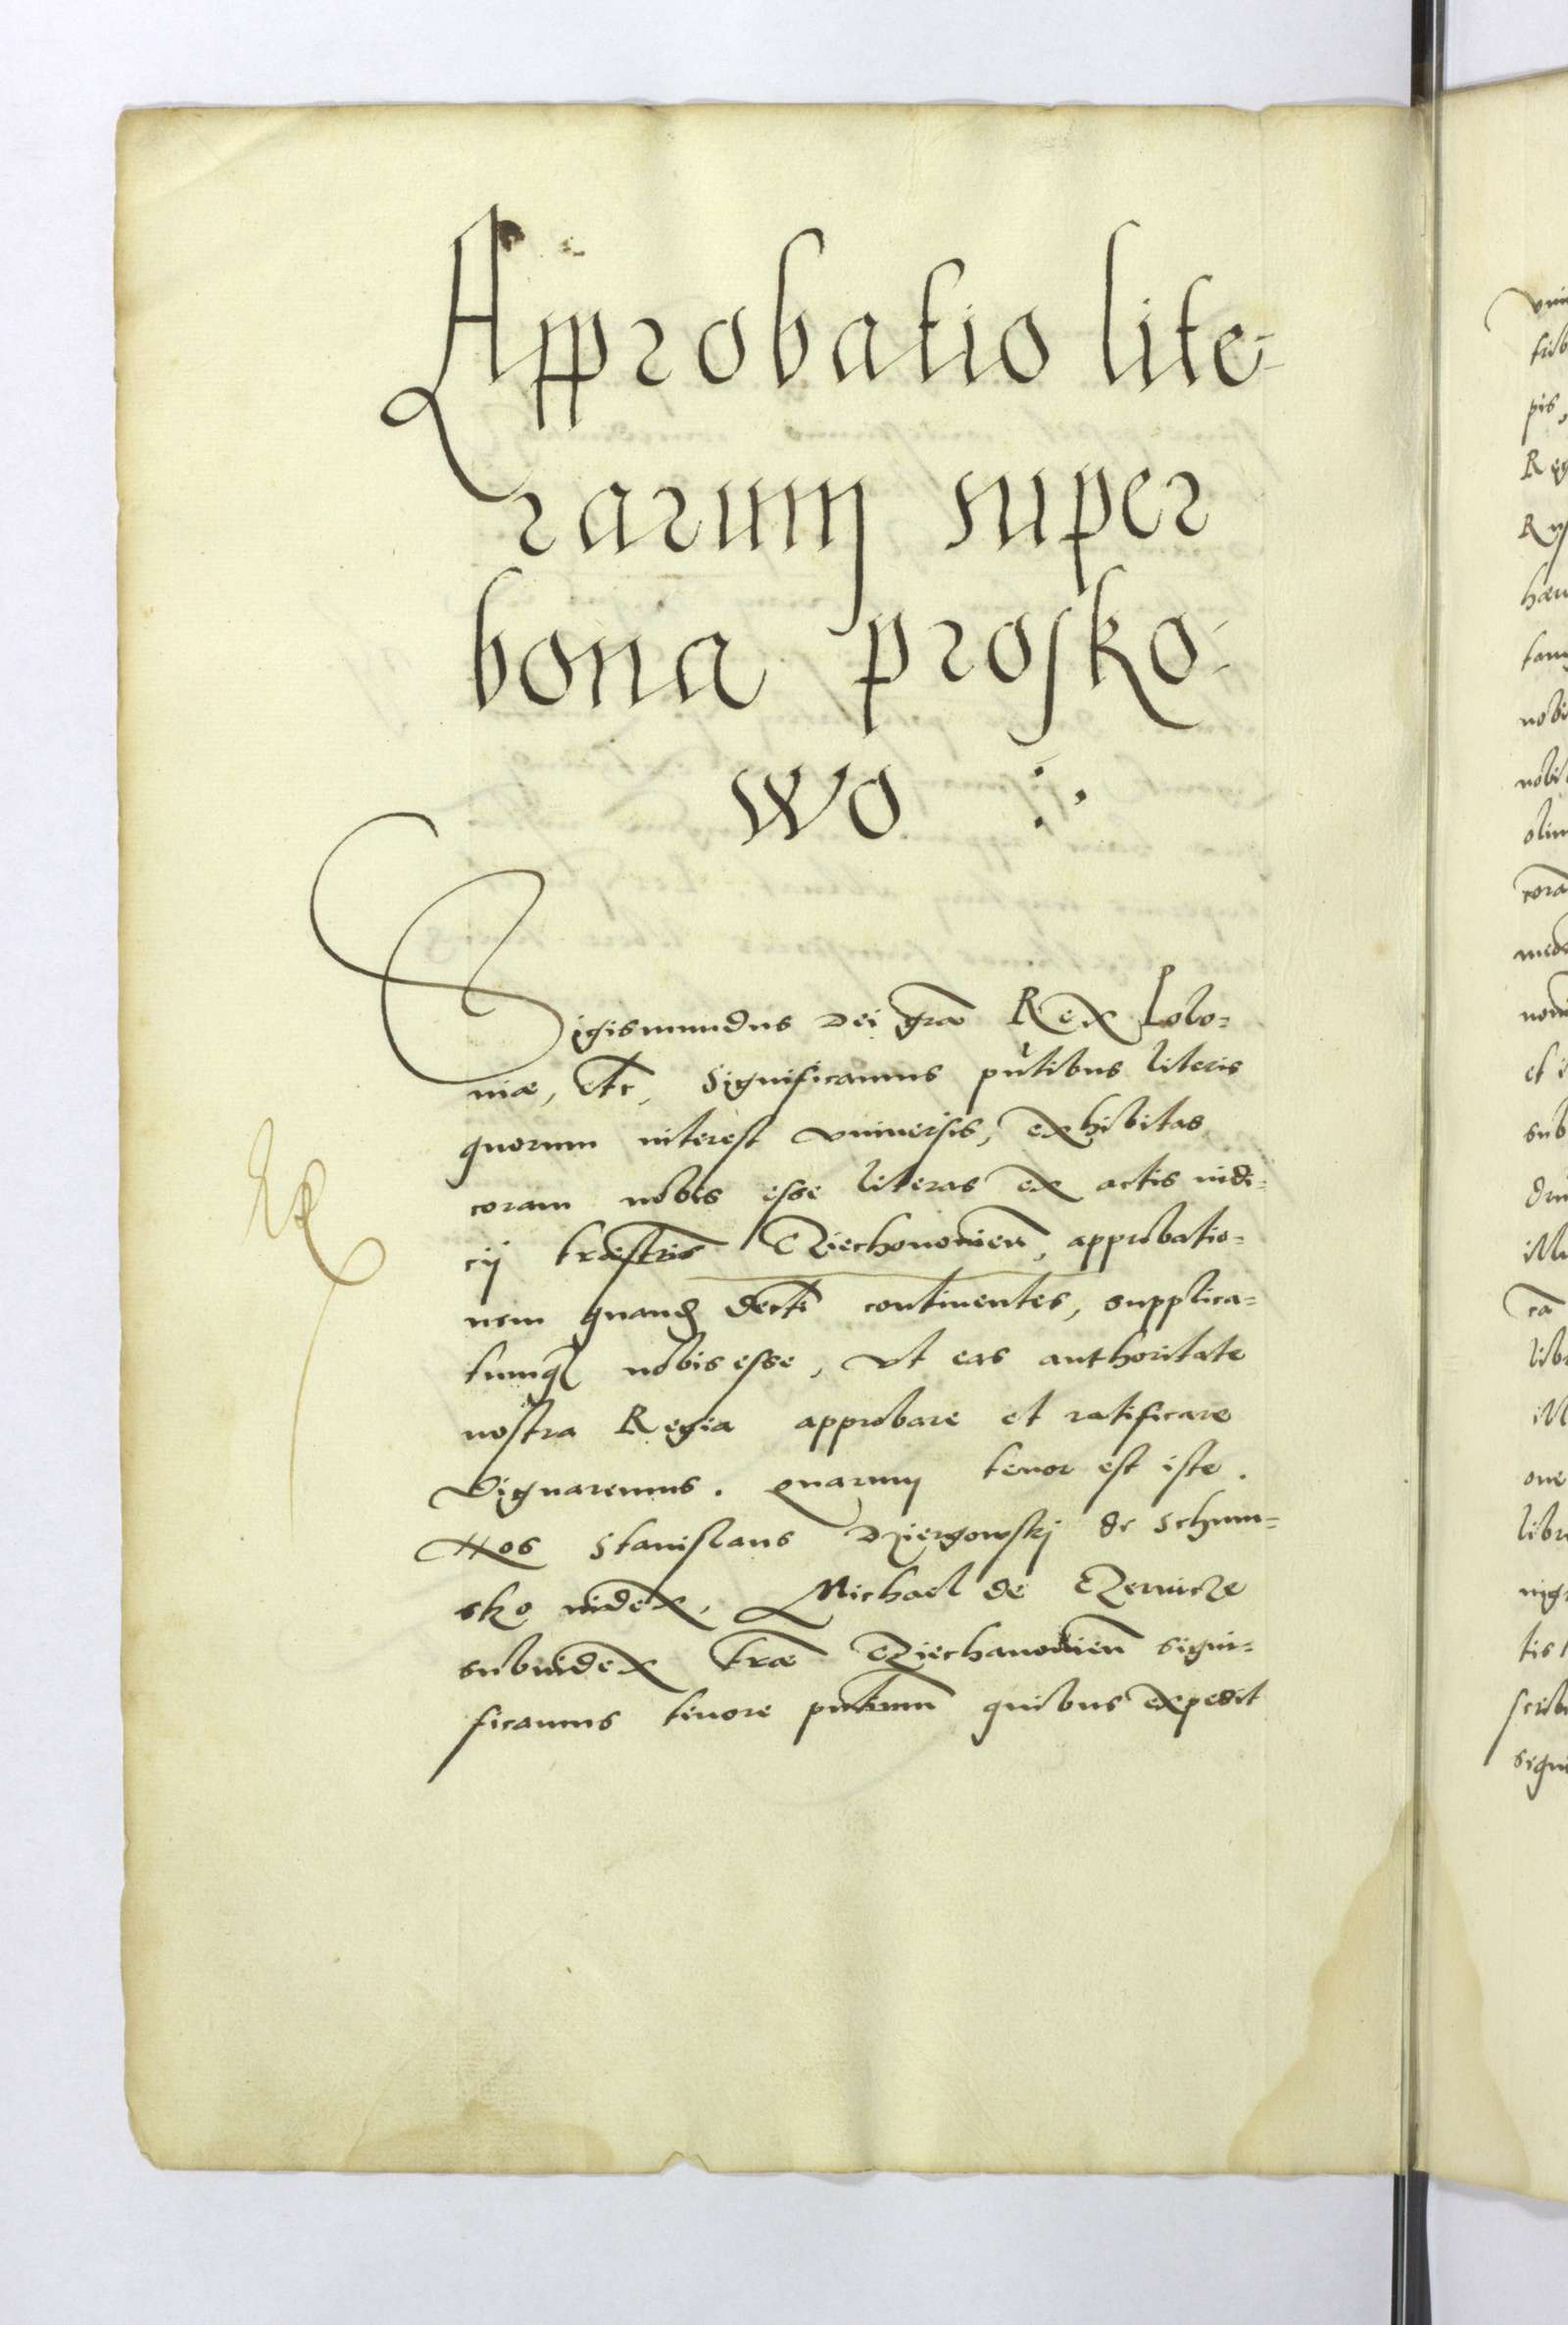 Approbatio lite-
rarum super
bona prosko-
wo :,
Sigismundus Dei gra͞ Rex Polo=
niæ, Etc, Significamus pn̄tibus literis
quorum interest vniuersis, exhibitas
coram nobis esse literas ex actis iudi=
cij terrestris Cziechonouien̄, approbatio=
nem decti continentes, supplica=
tumq nobis esse, vt eas authoritate
nostra Regia approbare et ratificare
dignaremus. quarum tenor est iste.
Nos Stanislaus Dziergowskj de Schum=
sko iudex, Michael de Czernicze
subiudex træ Cziechanouien̄ signi=
ficamus tenore pn̄tium quibus expedit